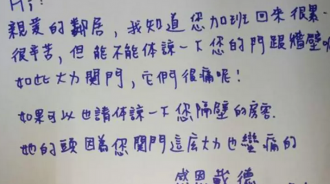 Hi!
親愛的鄰居,我知道您加班回來很累、
很辛苦,但能不能體諒一下您的門跟牆壁
如此大力關門,它們很痛呢!
如果可以也請體諒一下您隔壁的房客
她的頭因為您關門這麼大力也蠻痛的
感恩戴德